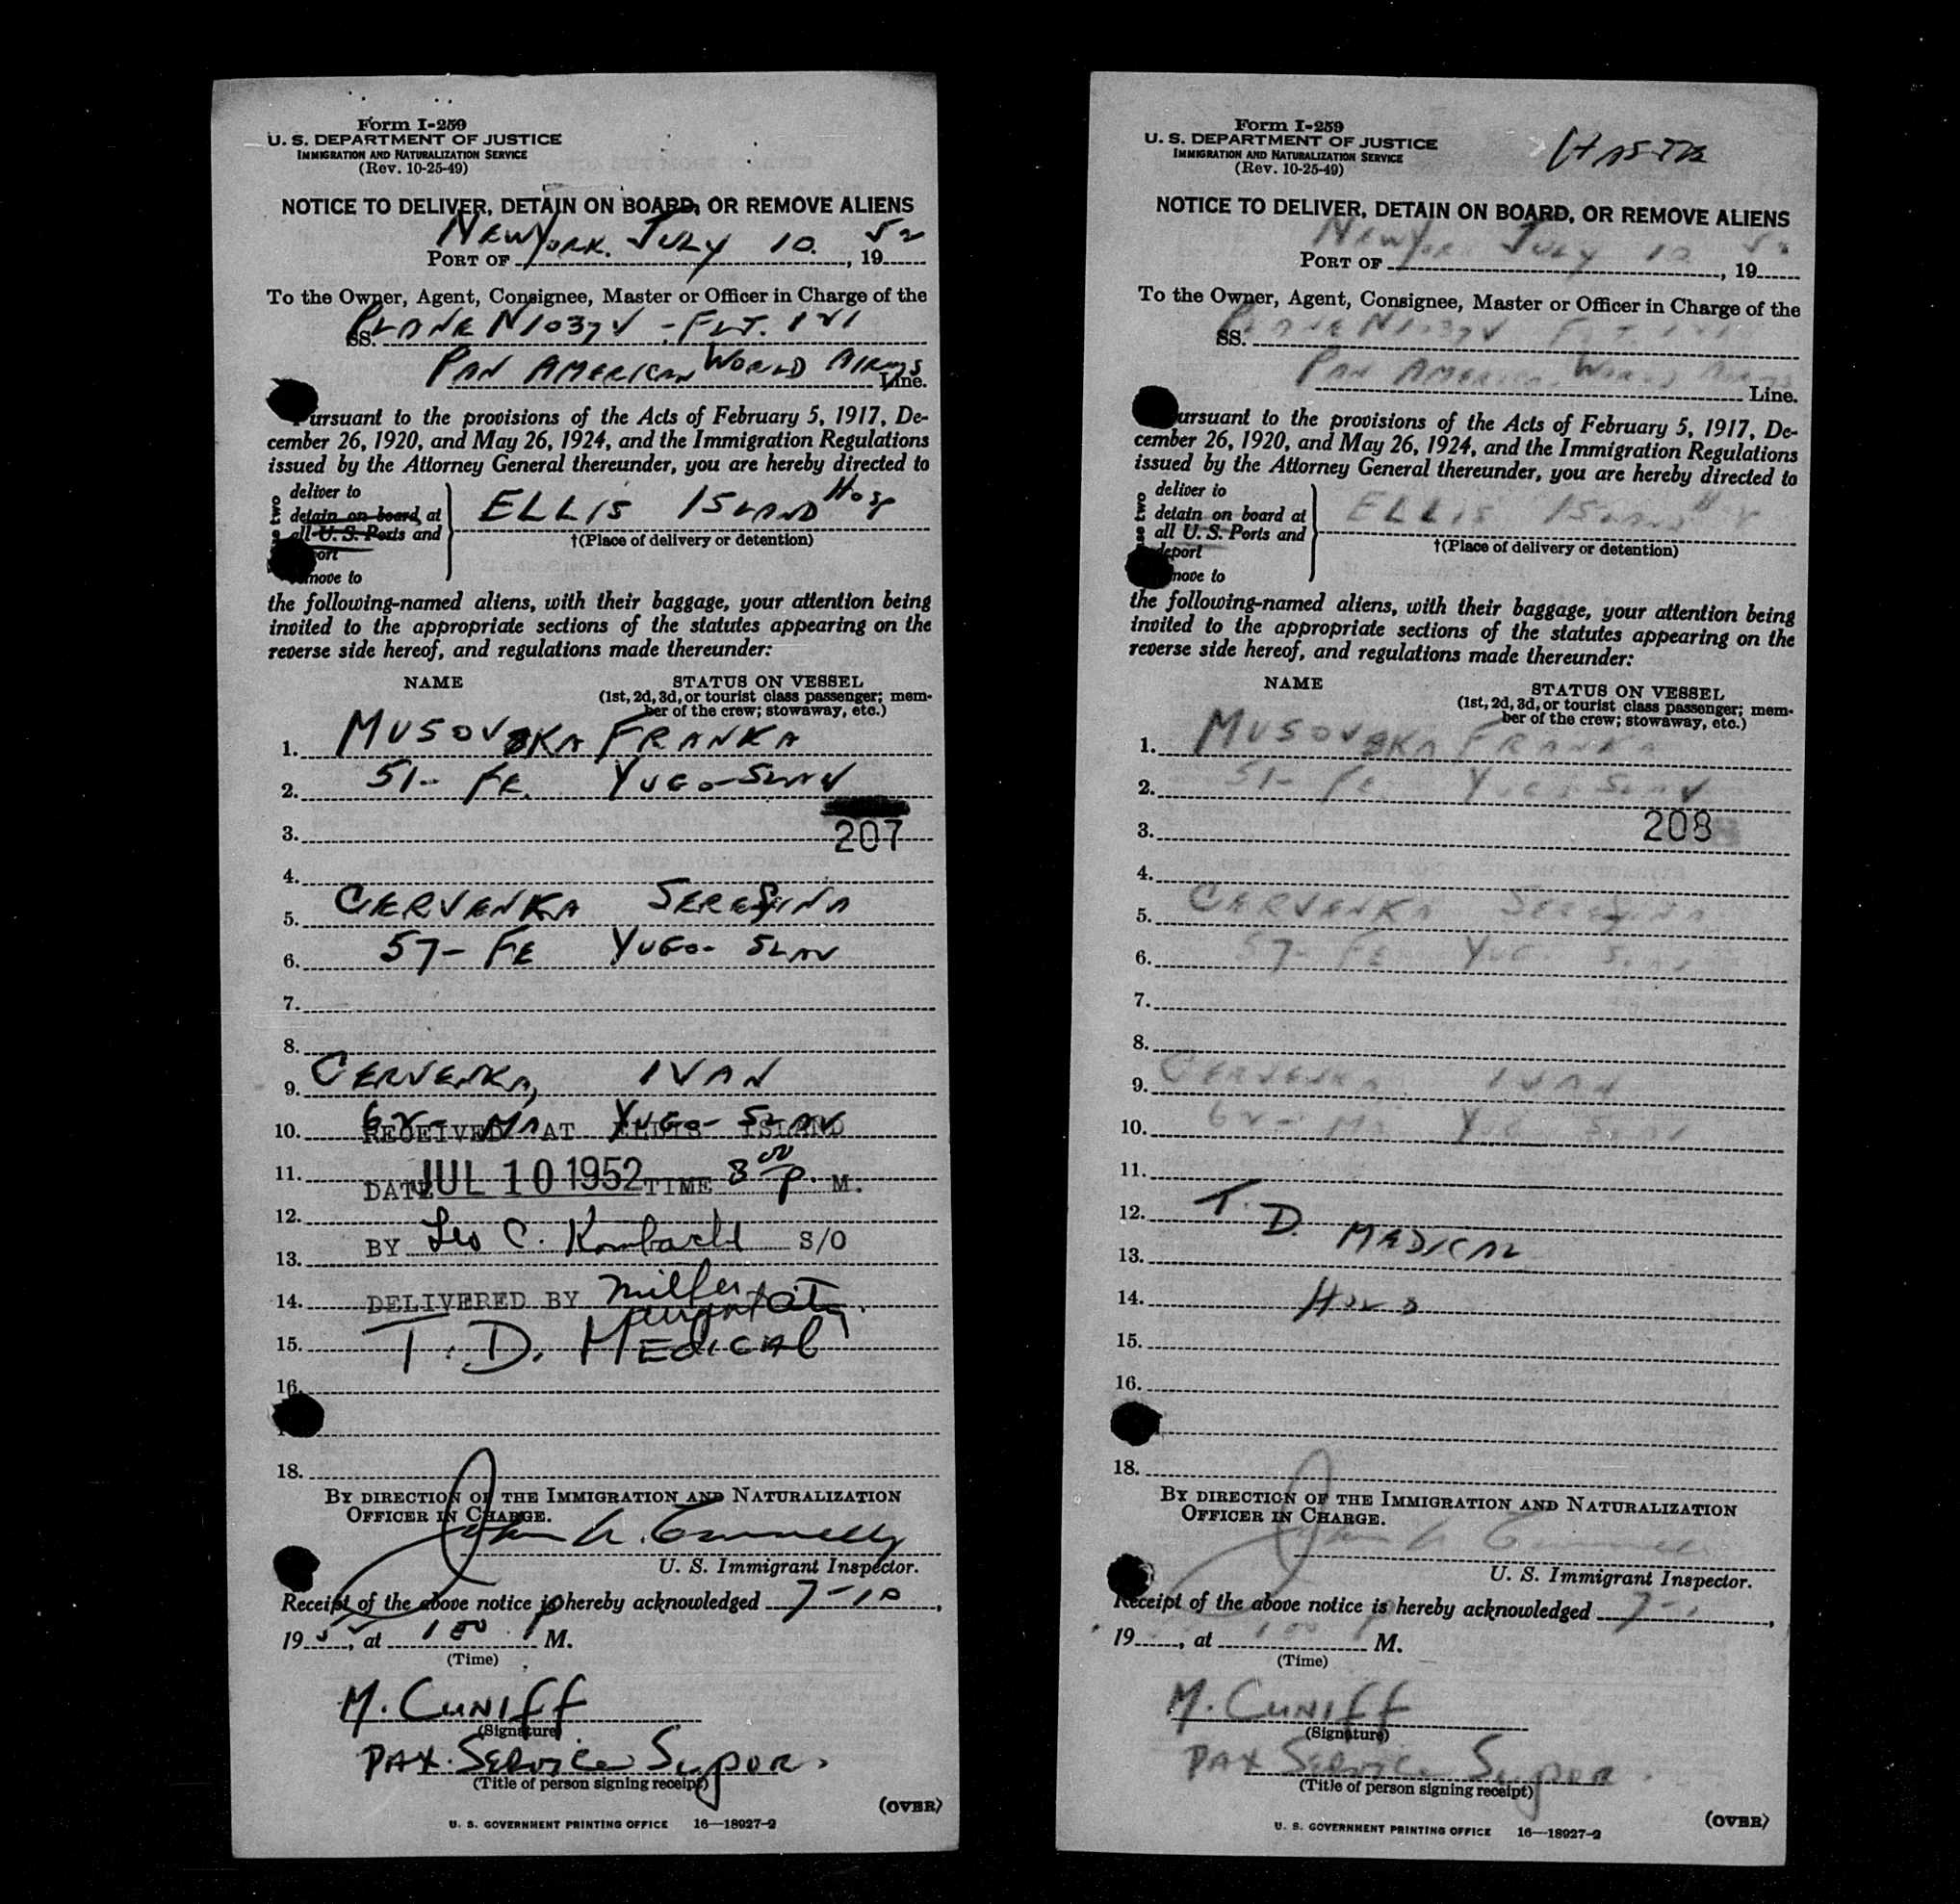 Form I-259
U. S. DEPARTMENT OF JUSTICE
IMMIGRATION AND NATURALIZATION SERVICE
(Rev. 10-25-49)
NOTICE TO DELIVER, DETAIN ON BOARD, OR REMOVE ALIENS
PORT OF NEW YORK. JULY 10. , 19 52
To the Owner, Agent, Consignee, Master or Officer in Charge of the
SS. PLANE N1037V - FLT. 121
PAN AMERICAN WORLD AIRWYS Line.
ursuant to the provisions of the Acts of February 5, 1917, De-
cember 26, 1920, and May 26, 1924, and the Immigration Regulations
issued by the Attorney General thereunder, you are hereby directed to
deliver to
detain on board at
all U. S. Ports and
port
move to
two
ELLIS ISLAND HOSP
†(Place of delivery or detention)
the following-named aliens, with their baggage, your attention being
invited to the appropriate sections of the statutes appearing on the
reverse side hereof, and regulations made thereunder:
NAME STATUS ON VESSEL
(1st, 2d, 3d, or tourist class passenger; mem-
ber of the crew; stowaway, etc.)
1. MUSOVSKA FRANKA
2. 51- FE. YUGO-SLAV
3. 207
4.
5. CERVENKA SEREFINA
6. 57- FE YUGO- SLAV
7.
8.
9. CERVENKA, IVAN
10. 62- MA YUGO- SLAV
RECEIVED AT ELLIS ISLAND
11. DATE JUL 10 1952 TIME 8 00 P. M.
12.
BY Leo C. S/O
13.
14. DELIVERED BY Miller
15. T. D. MEDICAL
16.
18.
BY DIRECTION OF THE IMMIGRATION AND NATURALIZATION
OFFICER IN CHARGE.
John A. Connelly
U. S. Immigrant Inspector.
Receipt of the above notice is hereby acknowledged 7-10,
19 52, at 1 00 P M.
(Time)
M. CUNIFF
(Signature)
PAX. SERVICE SUPOR.
(Title of person signing receipt)
(OVER)
U. S. GOVERNMENT PRINTING OFFICE 16—18927-2
Form I-259
U. S. DEPARTMENT OF JUSTICE
IMMIGRATION AND NATURALIZATION SERVICE
(Rev. 10-25-49)
NOTICE TO DELIVER, DETAIN ON BOARD, OR REMOVE ALIENS
PORT OF NEW YORK JULY 10 , 19 52
To the Owner, Agent, Consignee, Master or Officer in Charge of the
SS. PLANE N1037V FLT. 121
PAN AMERICAN WORLD AIRWYS Line.
ursuant to the provisions of the Acts of February 5, 1917, De-
cember 26, 1920, and May 26, 1924, and the Immigration Regulations
issued by the Attorney General thereunder, you are hereby directed to
deliver to
detain on board at
all U. S. Ports and
deport
move to
two
ELLIS ISLAND HOSP
†(Place of delivery or detention)
the following-named aliens, with their baggage, your attention being
invited to the appropriate sections of the statutes appearing on the
reverse side hereof, and regulations made thereunder:
NAME STATUS ON VESSEL
(1st, 2d, 3d, or tourist class passenger; mem-
ber of the crew; stowaway, etc.)
1. MUSOVSKA FRANKA
2. 51- FE. YUGO-SLAV
3. 208
4.
5. CERVENKA SEREFINA
6. 57- FE YUGO- SLAV
7.
8.
9. CERVENKA IVAN
10. 62- MA YUGO SLAV
11.
12. T. D. MEDICAL
13.
14. HOLD
15.
16.
18.
BY DIRECTION OF THE IMMIGRATION AND NATURALIZATION
OFFICER IN CHARGE.
John A Connelly
U. S. Immigrant Inspector.
Receipt of the above notice is hereby acknowledged 7-1 ,
19 , at 1 00 P M.
(Time)
M. CUNIFF
(Signature)
PAX SERVICE SUPOR.
(Title of person signing receipt)
(OVER)
U. S. GOVERNMENT PRINTING OFFICE 16—18927-2